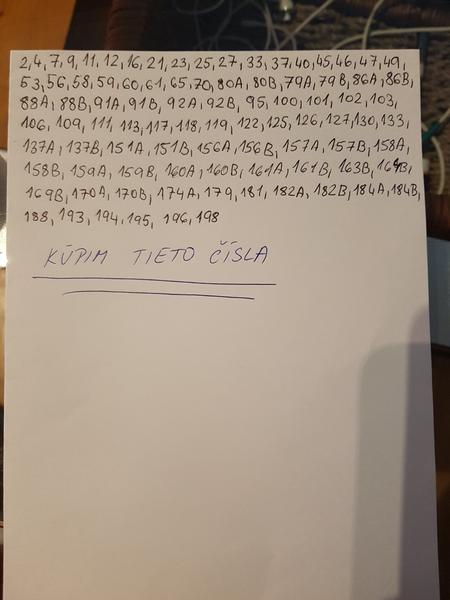 2, 4, 7, 9, 11, 12, 16, 21, 23, 25, 27, 33, 37, 40, 45, 46, 47, 49,
53, 56, 58, 59, 60, 61, 65, 70, 80A, 80B, 79A, 79B, 86A, 86B,
88A, 88B, 91A, 91B, 92A, 92B, 95, 100, 101, 102, 103,
106, 109, 111, 113, 117, 118, 119, 122, 125, 126, 127, 130, 133,
137A, 137B, 151A, 151B, 156A, 156B, 157A, 157B, 158A,
158B, 159A, 159B, 160A, 160B, 161A, 161B, 163B, 164B,
169B, 170A, 170B, 174A, 179, 181, 182A, 182B, 184A, 184B,
188, 193, 194, 195, 196, 198
KÚPIM TIETO ČÍSLA